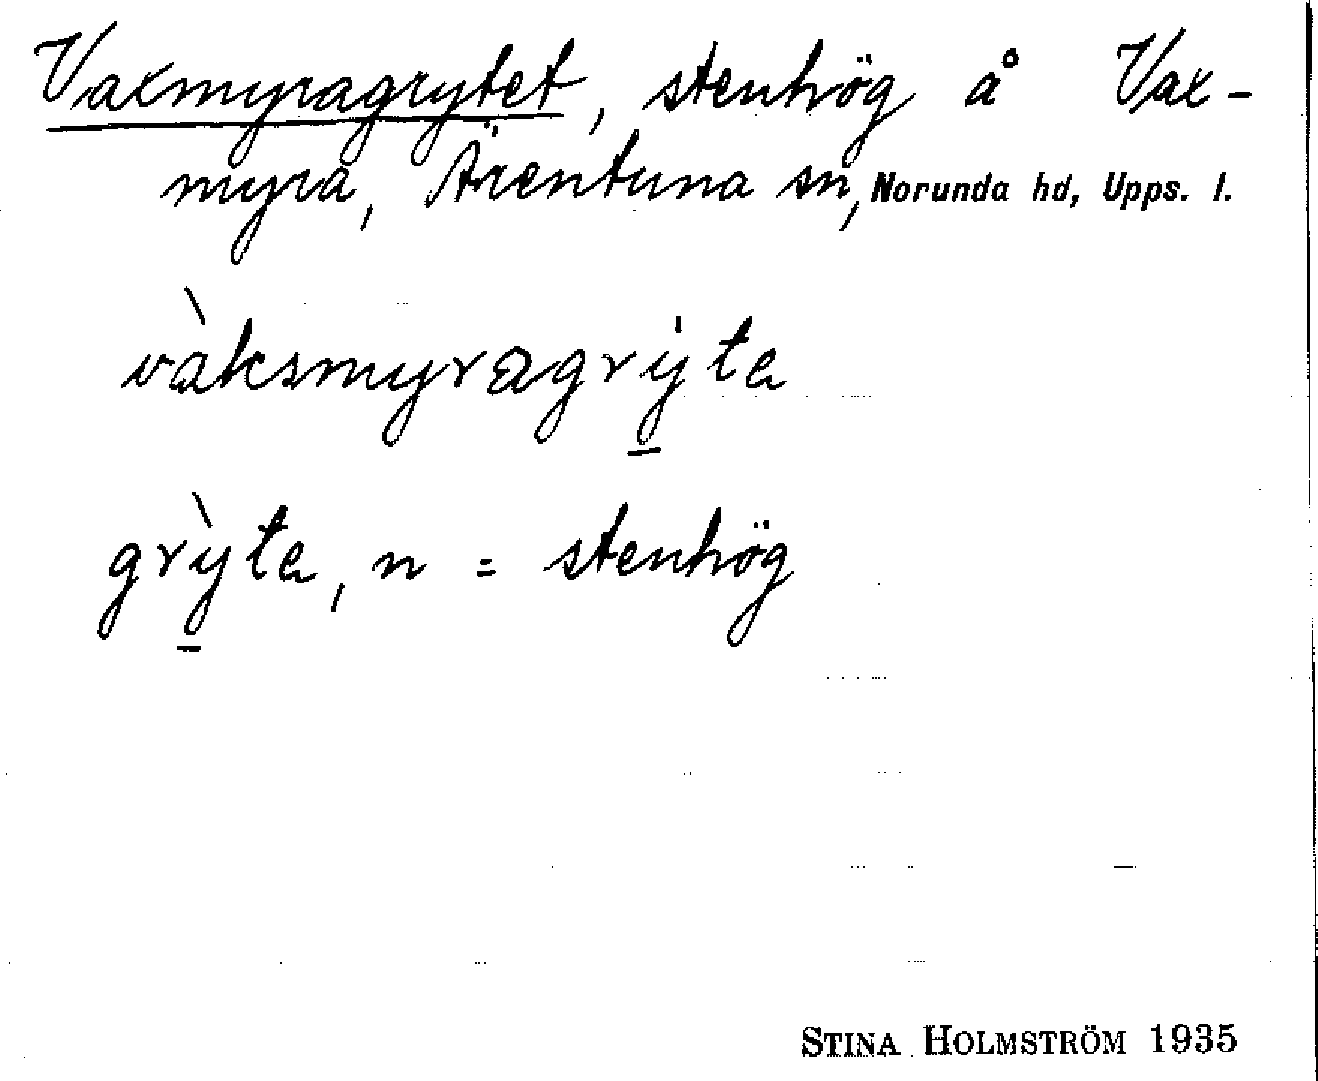 Vaxmyragrytet, stenhög å Vax-
myra, Ärentuna sn, Norunda hd, Upps. l.
vàksmyragry̱̍ta
grỳ̱ta, n = stenhög
STINA HOLMSTRÖM 1935